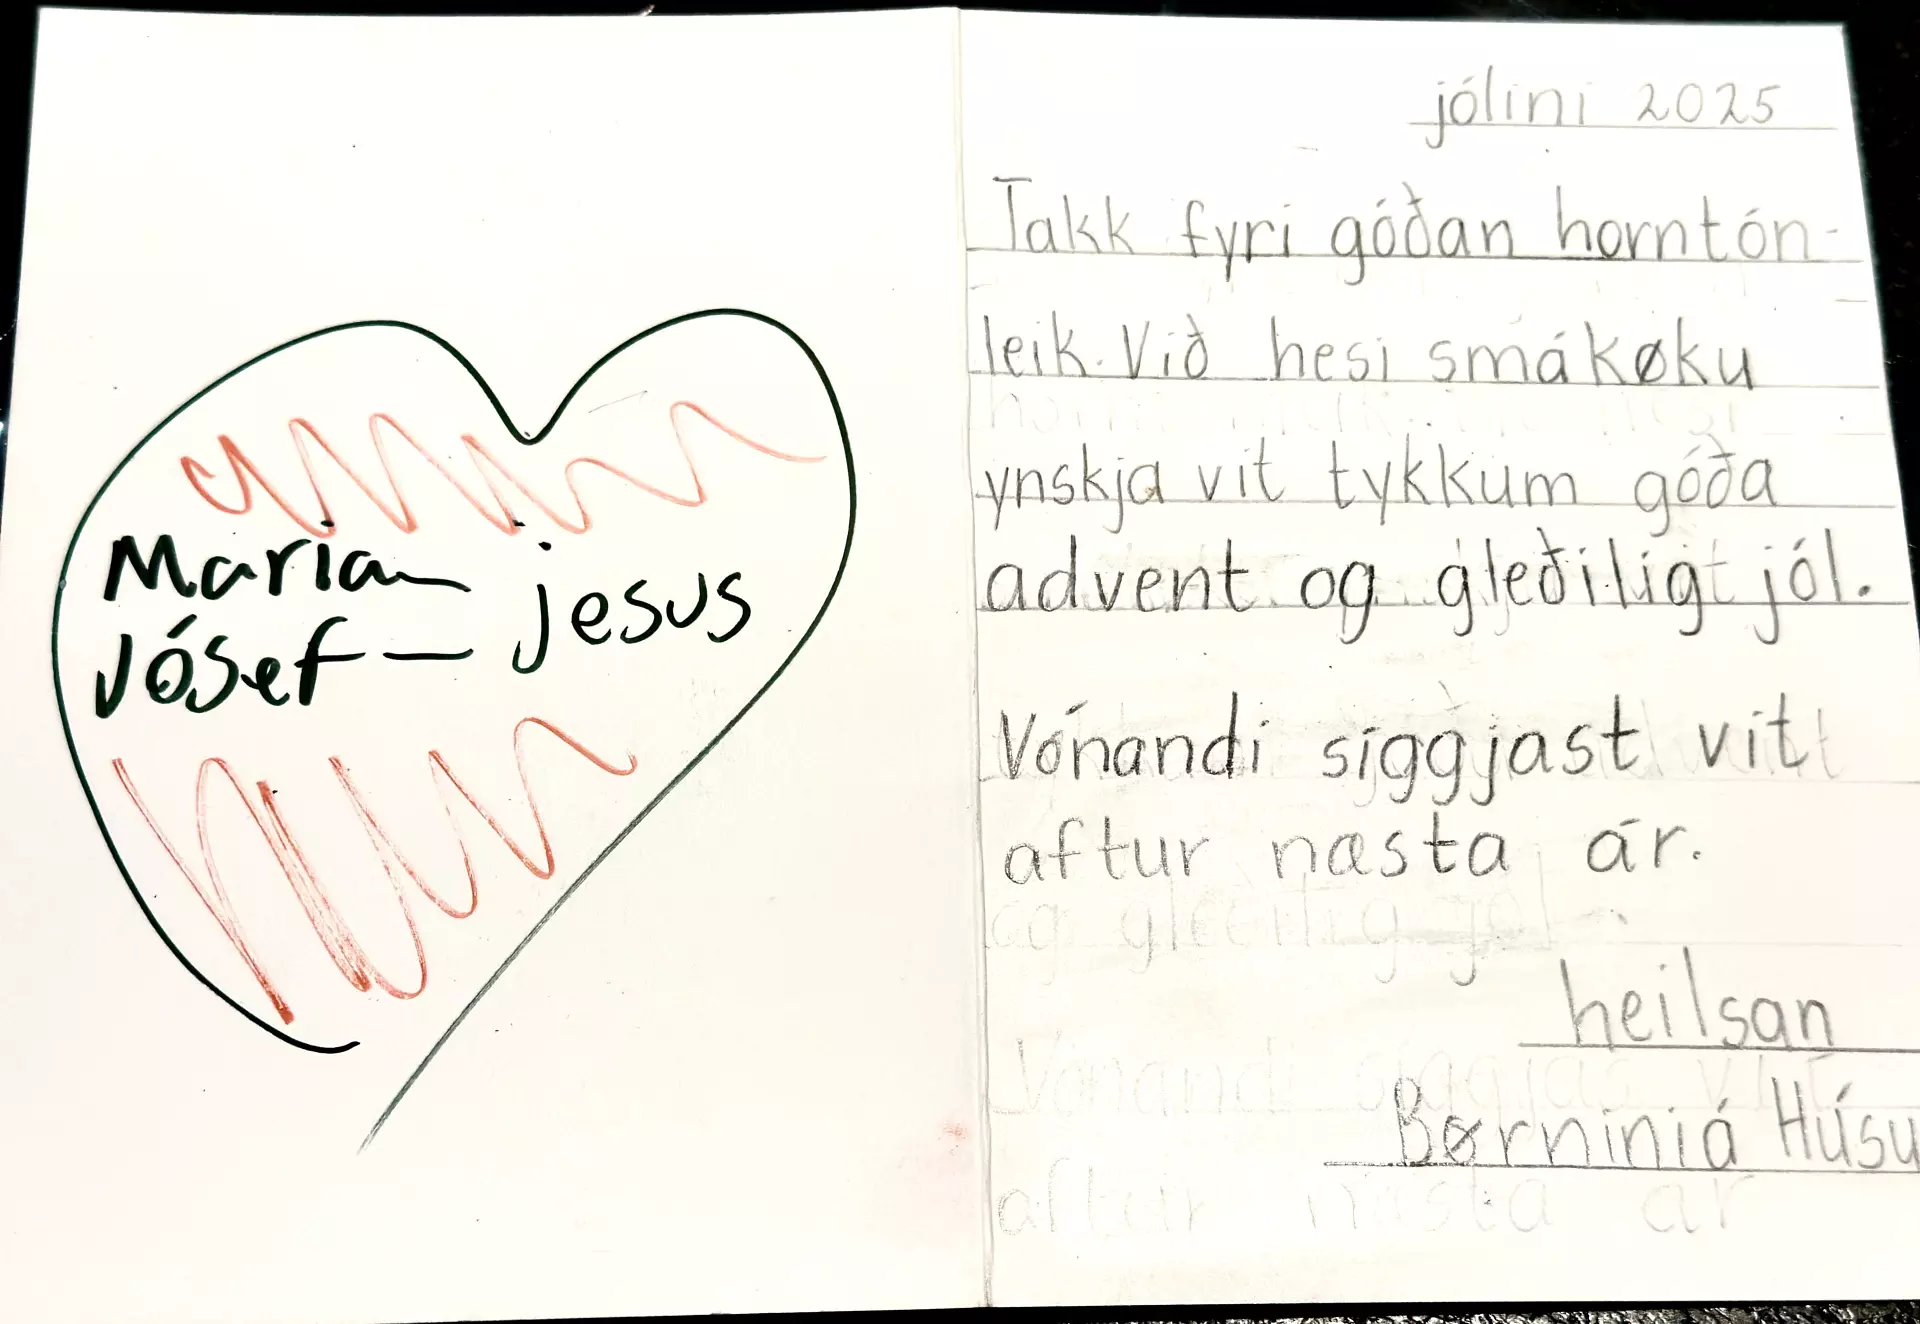 Maria
Jósef — jesus
jólini 2025
Takk fyri góðan horntón-
leik. Við hesi smákøku
ynskja vit tykkum góða
advent og gleðiligt jól.
Vónandi síggjast vit
aftur næsta ár.
heilsan
Børniniá Húsu